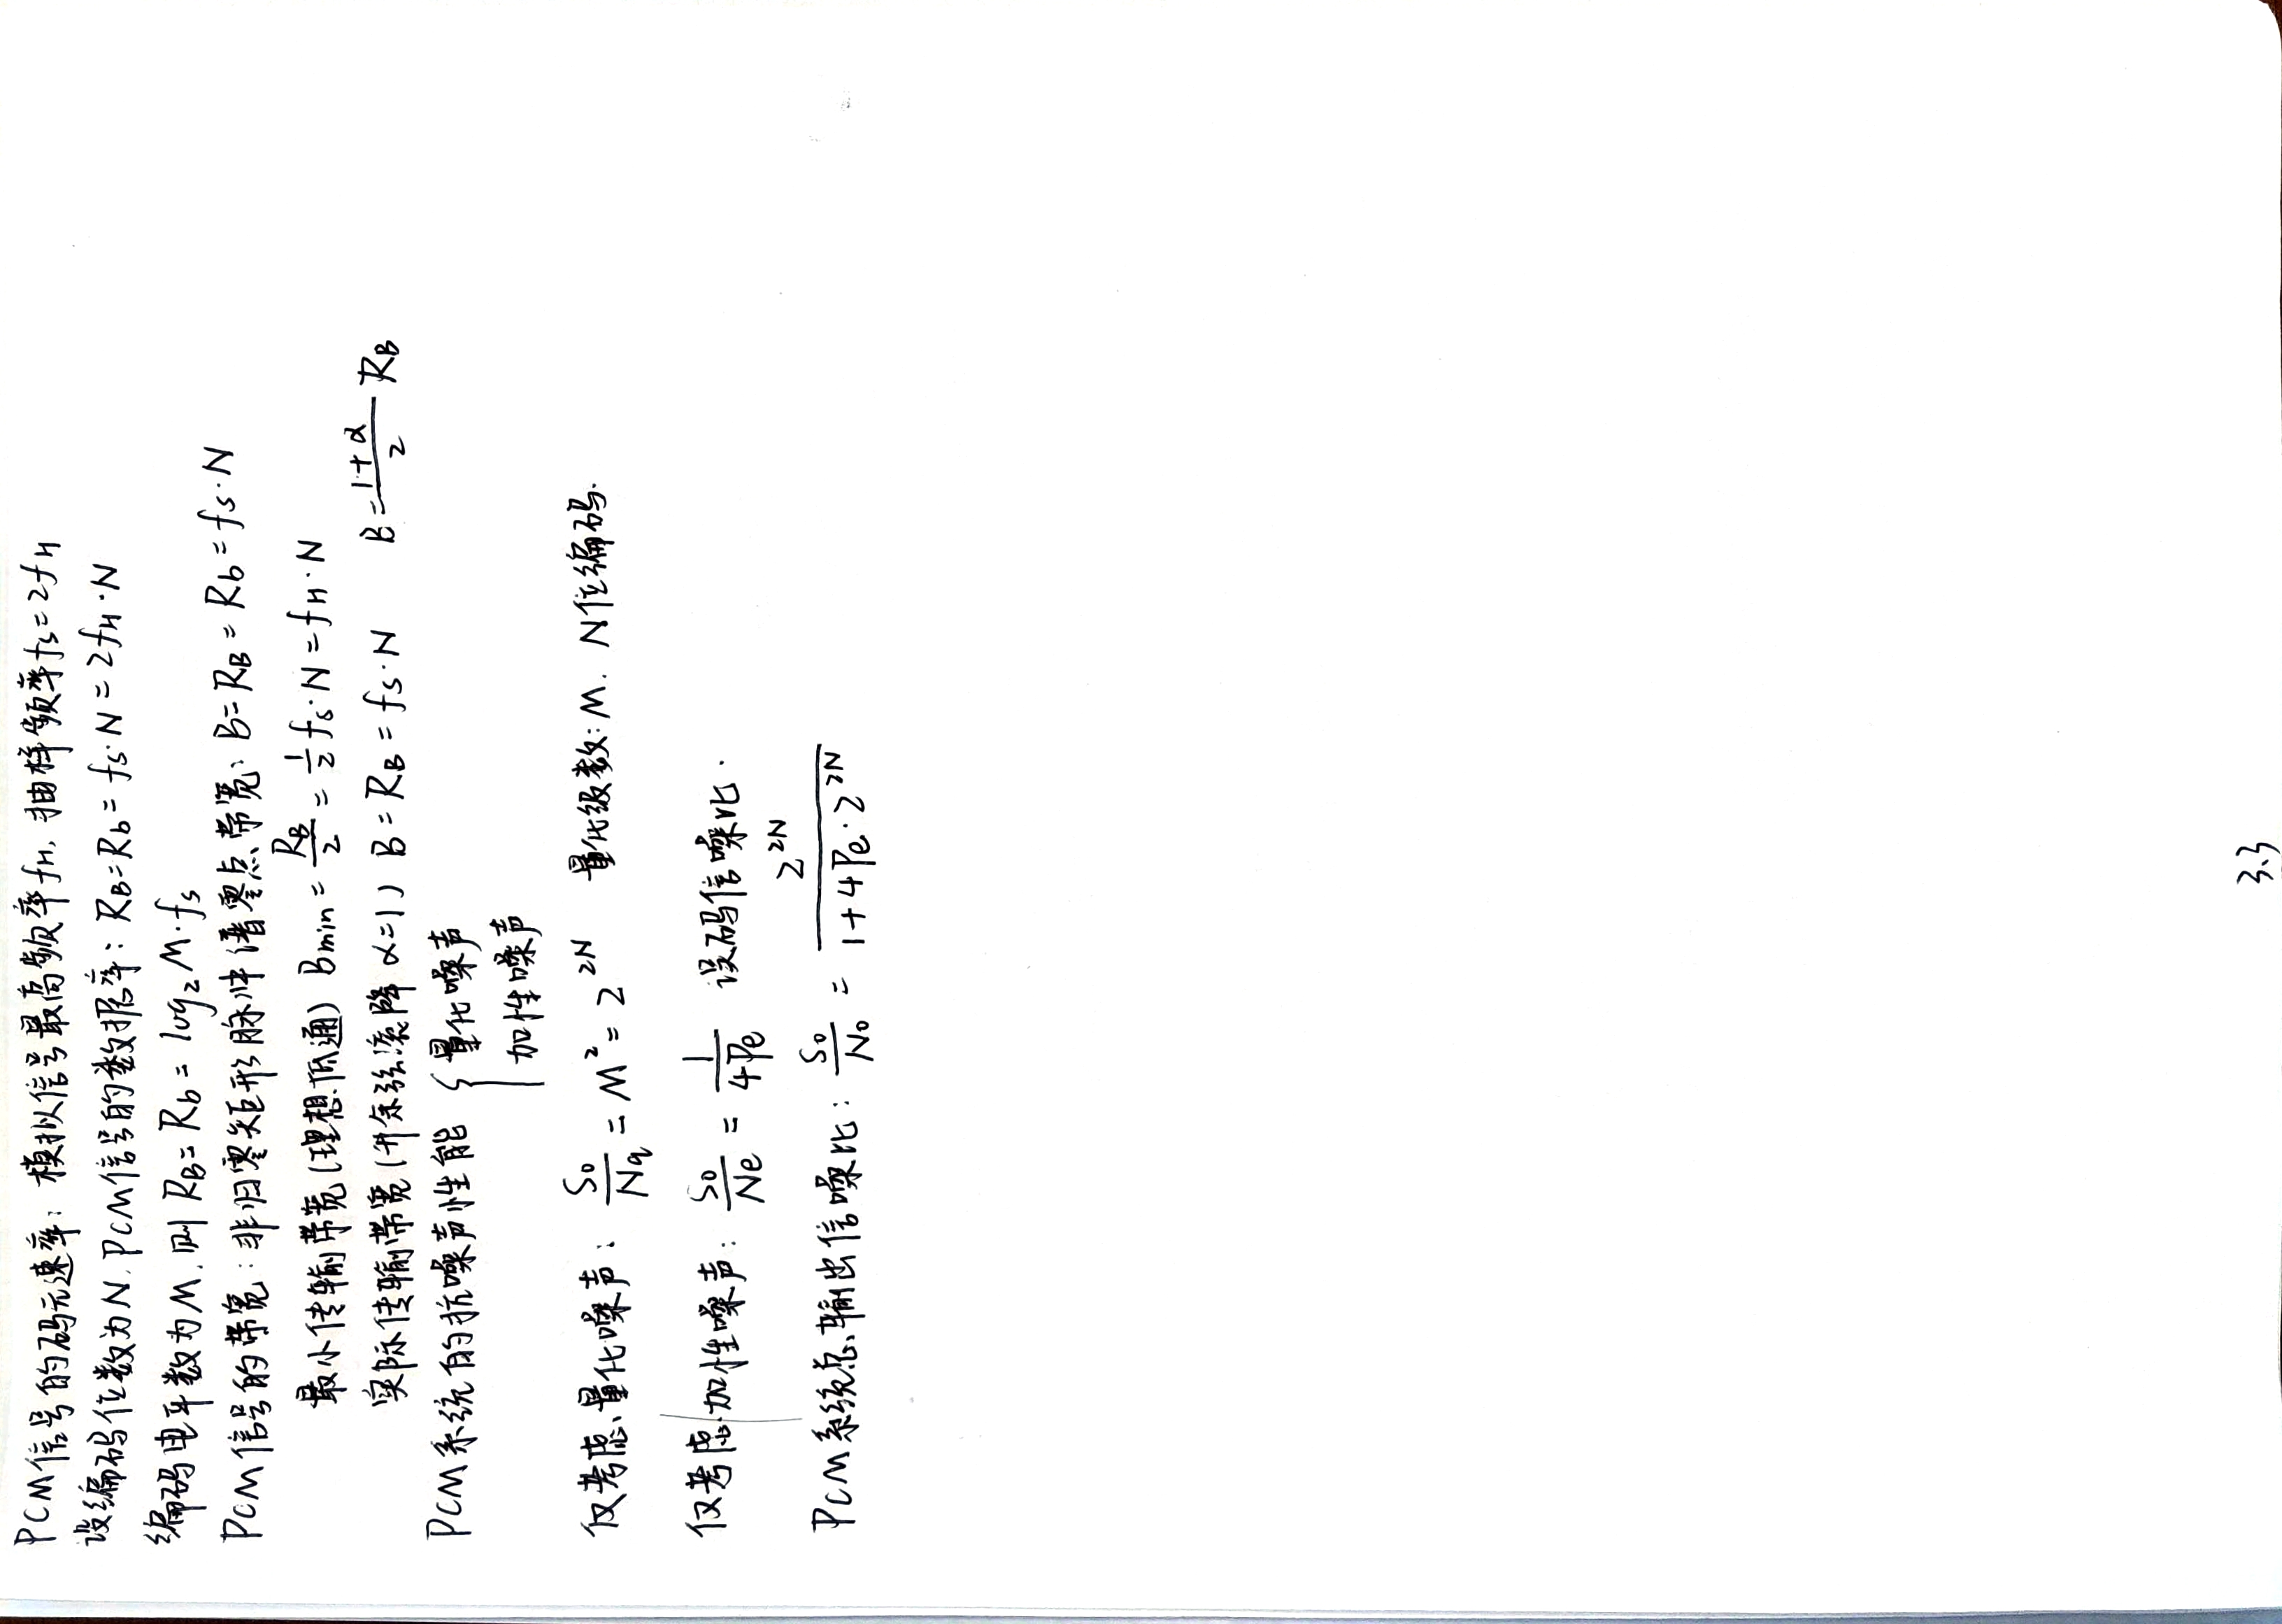 PCM信号的码元速率：模拟信号最高频率fH，抽样频率fs=2fH
设编码位数为N．PCM信号的数据率：RB=Rb=fs·N=2fH·N
编码电平数为M．则 RB=Rb=log₂M·fs
PCM信号的带宽：非归零矩形脉冲谱零点带宽：B=RB=Rb=fs·N
最小传输带宽(理想低通) Bmin=RB/2=1/2 fs·N=fH·N
实际传输带宽(升余弦滚降 α=1) B=RB=fs·N B=(1+α)/2 RB
PCM系统的抗噪声性能 { 量化噪声
加性噪声
仅考虑量化噪声：So/Nq=M²=2^2N 量化级数：M．N位编码．
仅考虑加性噪声：So/Ne=1/4Pe 误码信噪比．
PCM系统总输出信噪比：So/No=2^2N/(1+4Pe·2^2N)
3.3